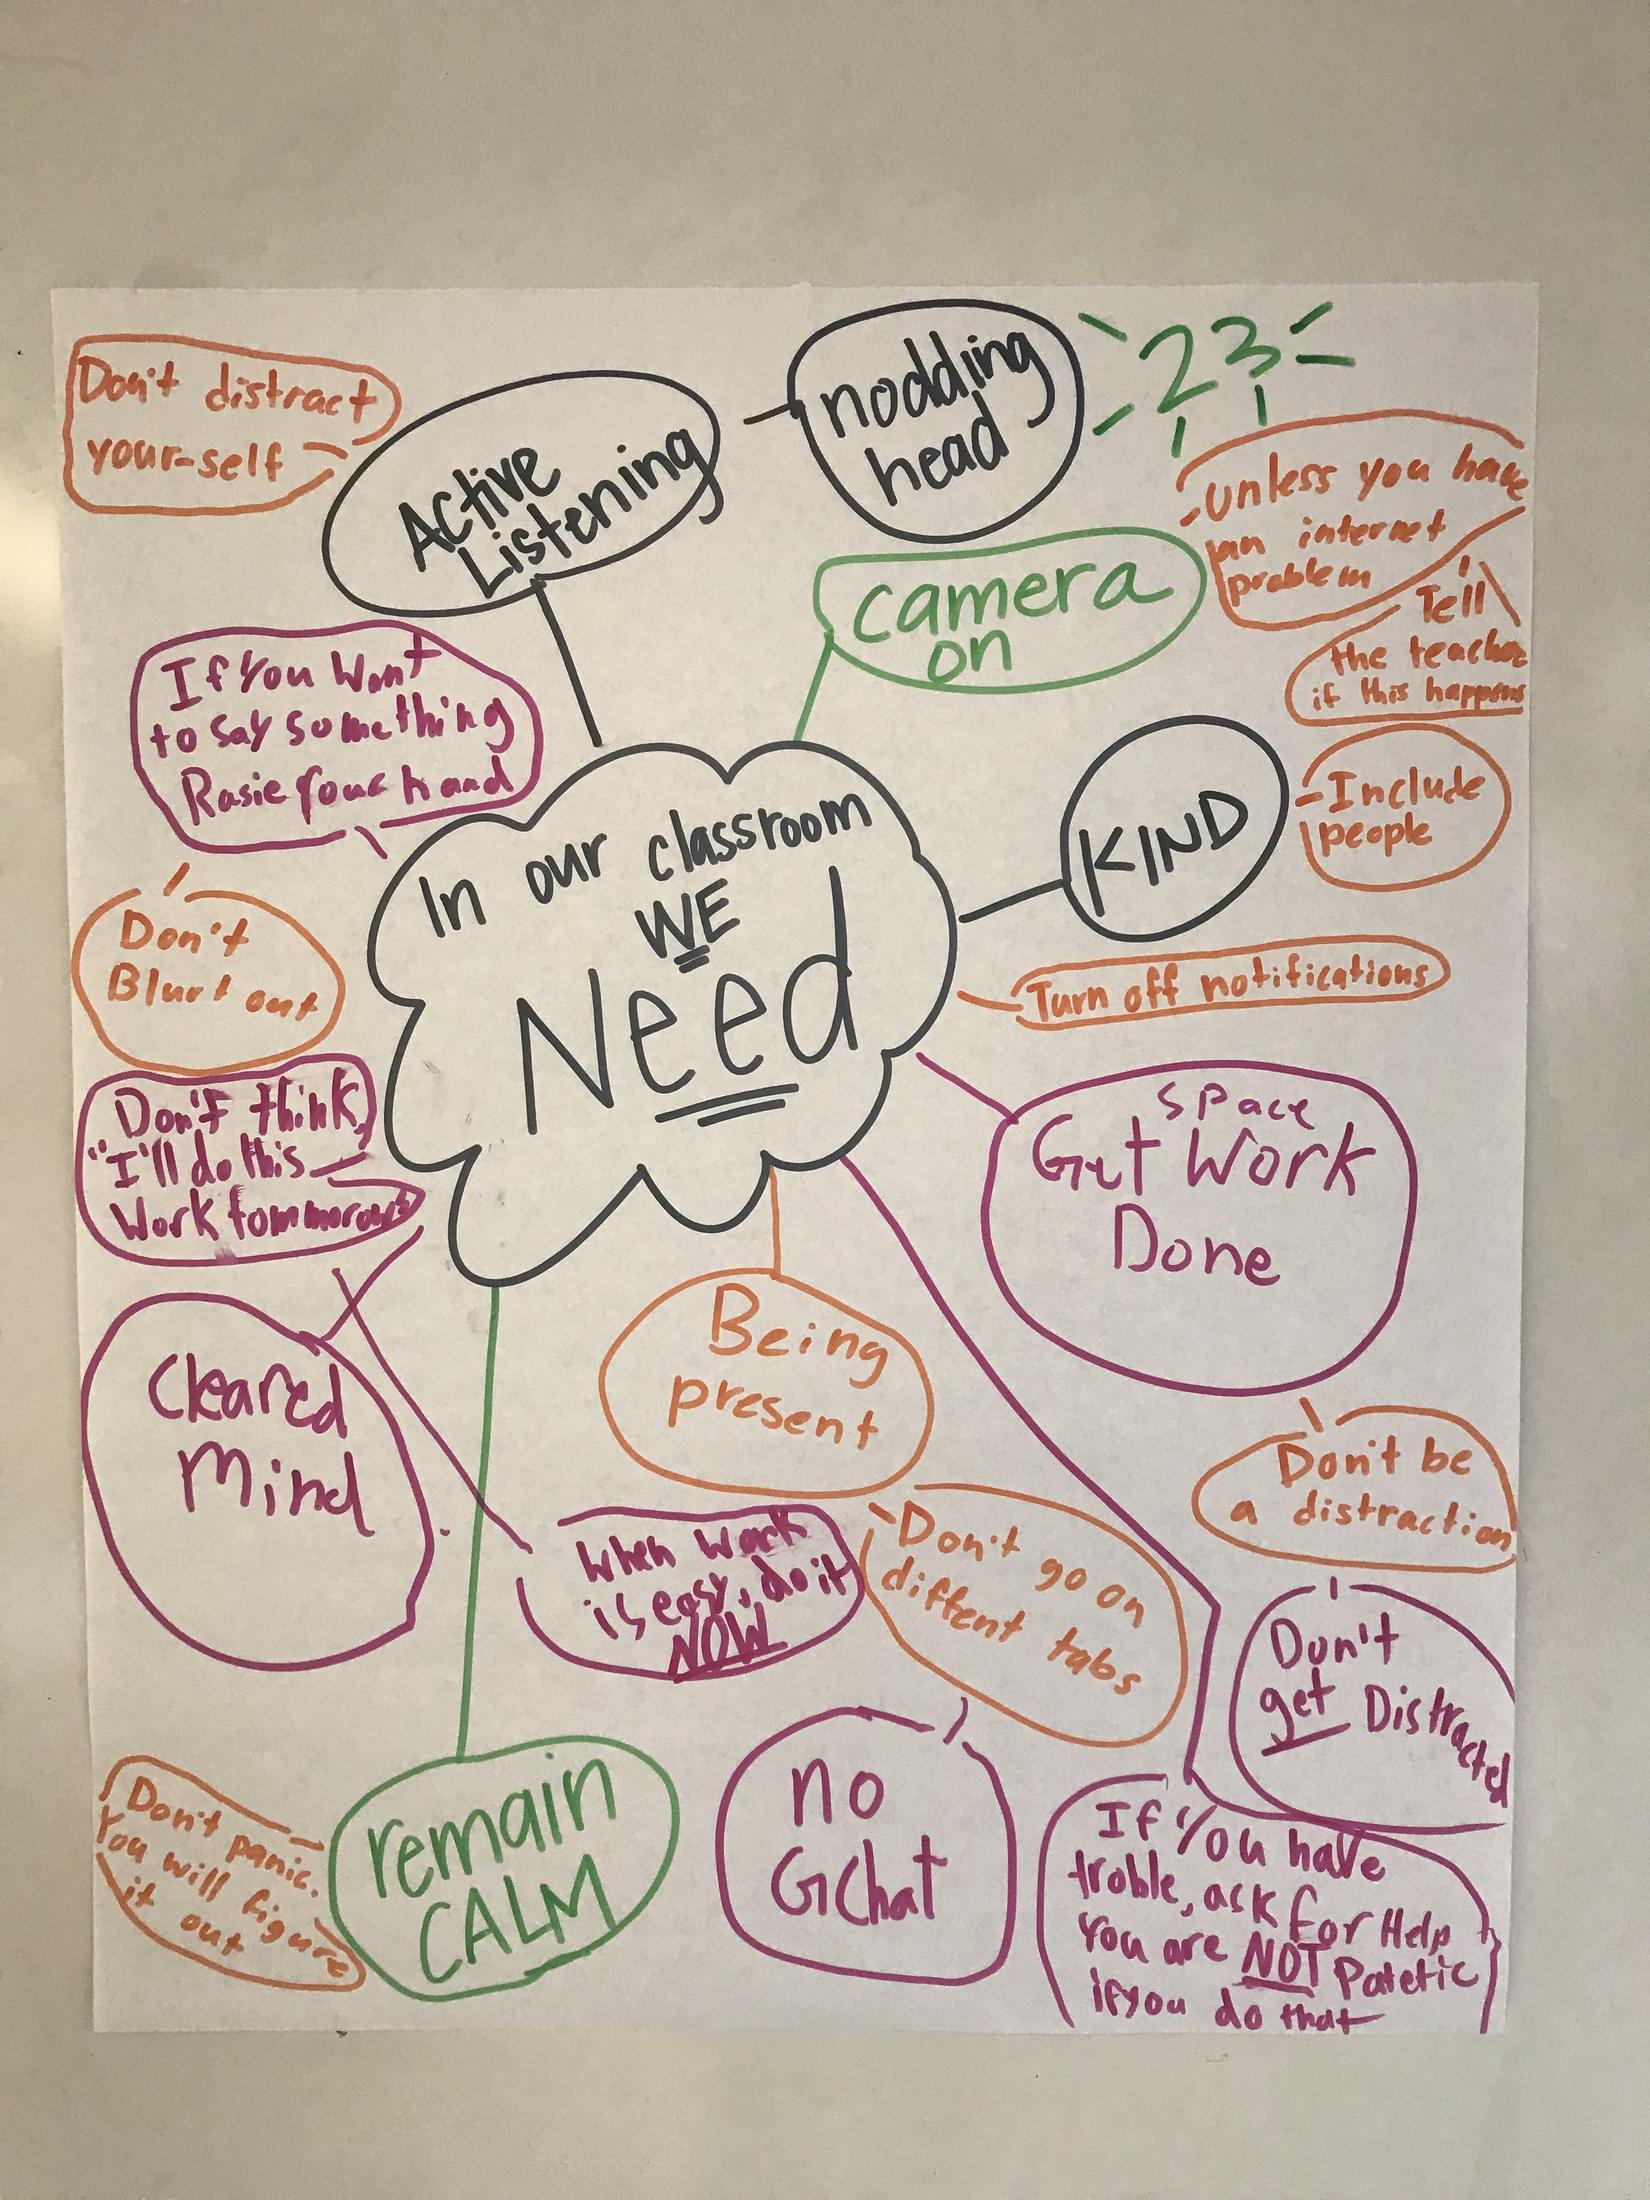 Don't distract
your-self
Active
Listening
nodding
head
23
camera
on
unless you have
an internet
problem
Tell
the teacher
if this happens
If You Want
to say something
Rasie your hand
Don't
Blurt out
In our classroom
WE
Need
KIND
Include
people
Turn off notifications
Don't think,
"I'll do this
Work tommorow"
space
Get Work
Done
Cleared
Mind
Being
present
When Work
is easy, do it
NOW
Don't go on
diffent tabs
Don't be
a distraction
Don't
get Distracted
no
GChat
remain
CALM
Don't panic.
You will figure
it out
If You have
troble, ask for Help
You are NOT Patetic
if you do that